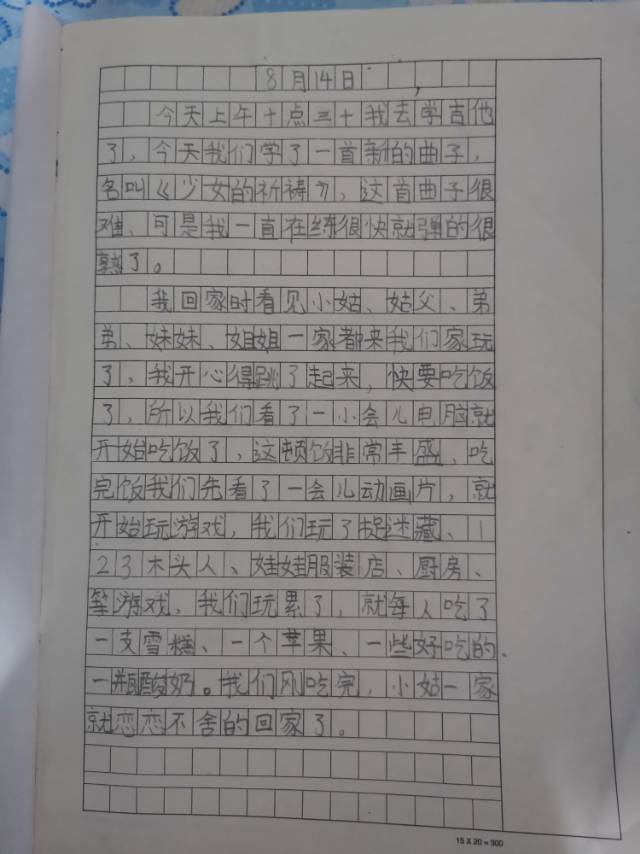 8月14日
今天上午十点三十我去学吉他
了，今天我们学了一首新的曲子，
名叫《少女的祈祷》，这首曲子很
难、可是我一直在练很快就弹的很
熟了。
我回家时看见小姑、姑父、弟
弟、妹妹、姐姐一家都来我们家玩
了，我开心得跳了起来，快要吃饭
了，所以我们看了一小会儿电脑就
开始吃饭了，这顿饭非常丰盛，吃
完饭我们先看了一会儿动画片，就
开始玩游戏，我们玩了捉迷藏、1
23木头人、娃娃服装店、厨房、
等游戏，我们玩累了，就每人吃了
一支雪糕、一个苹果、一些好吃的、
一瓶酸奶。我们刚吃完，小姑一家
就恋恋不舍的回家了。
15X20=300